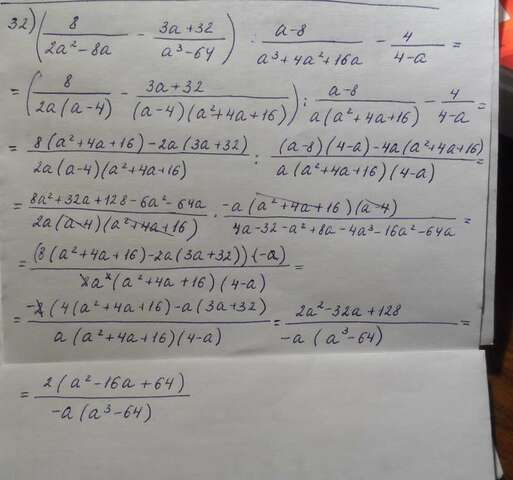 32) (8/(2a²-8a) - (3a+32)/(a³-64)) : (a-8)/(a³+4a²+16a) - 4/(4-a) =
= (8/(2a(a-4)) - (3a+32)/((a-4)(a²+4a+16))) : (a-8)/(a(a²+4a+16)) - 4/(4-a) =
= (8(a²+4a+16)-2a(3a+32))/(2a(a-4)(a²+4a+16)) : ((a-8)(4-a)-4a(a²+4a+16))/(a(a²+4a+16)(4-a)) =
= (8a²+32a+128-6a²-64a)/(2a(a-4)(a²+4a+16)) · (-a(a²+4a+16)(a-4))/(4a-32-a²+8a-4a³-16a²-64a) =
= ((8(a²+4a+16)-2a(3a+32))(-a))/(2a²(a²+4a+16)(4-a)) =
= (-2(4(a²+4a+16)-a(3a+32))/(a(a²+4a+16)(4-a)) = (2a²-32a+128)/(-a(a³-64)) =
= (2(a²-16a+64))/(-a(a³-64))